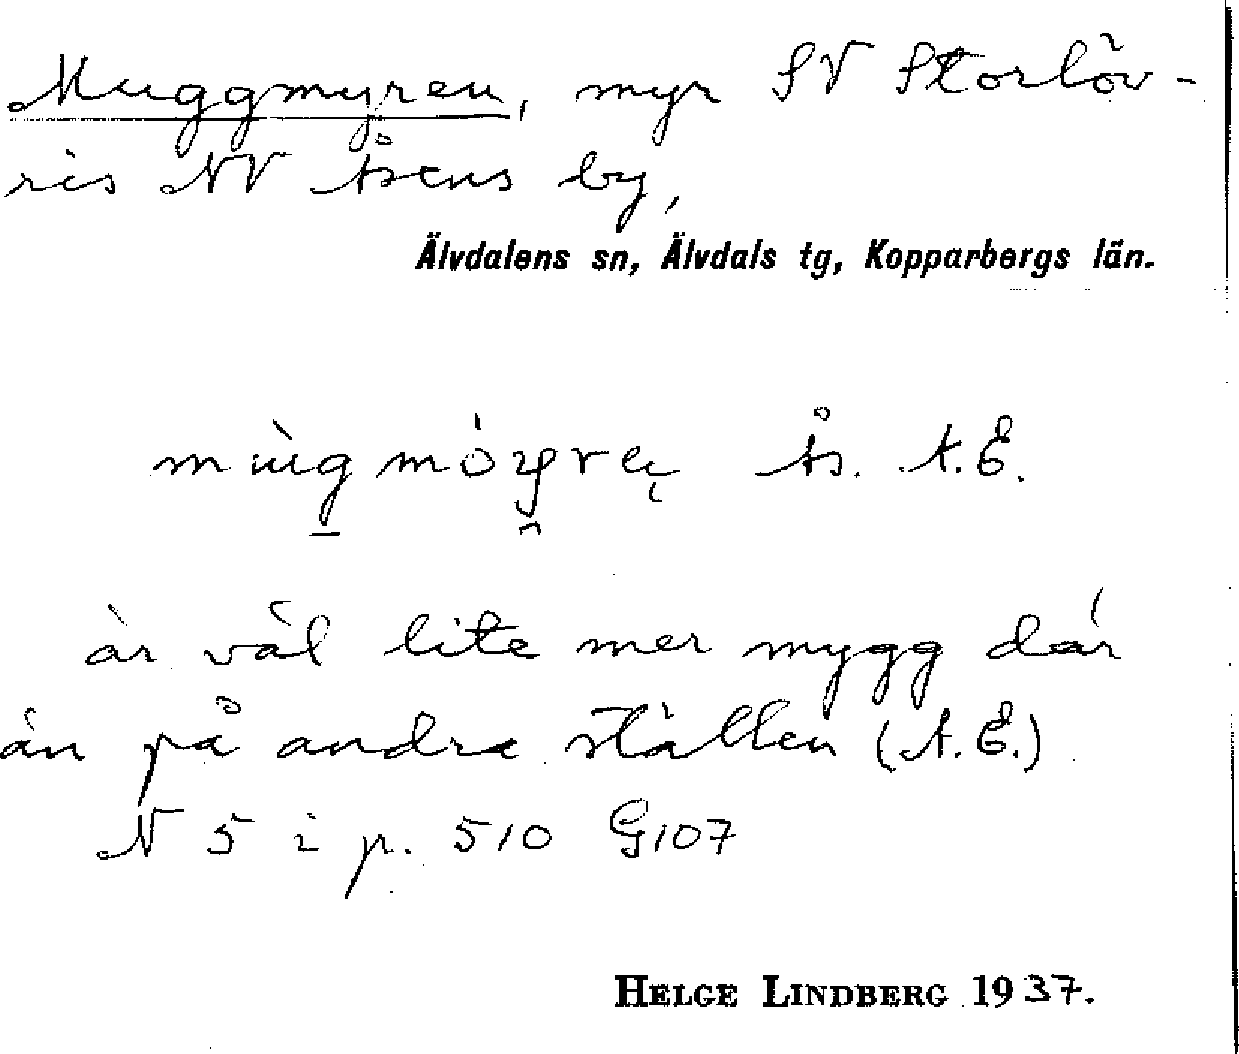 Muggmyren, myr SV Storlöv-
ris NV Åsens by,
Älvdalens sn, Älvdals tg, Kopparbergs län.
Ås. A.E.
är väl lite mer mygg där
än på andre ställen (A.E.)
N 5 i p. 510 G107
HELGE LINDBERG 1937.